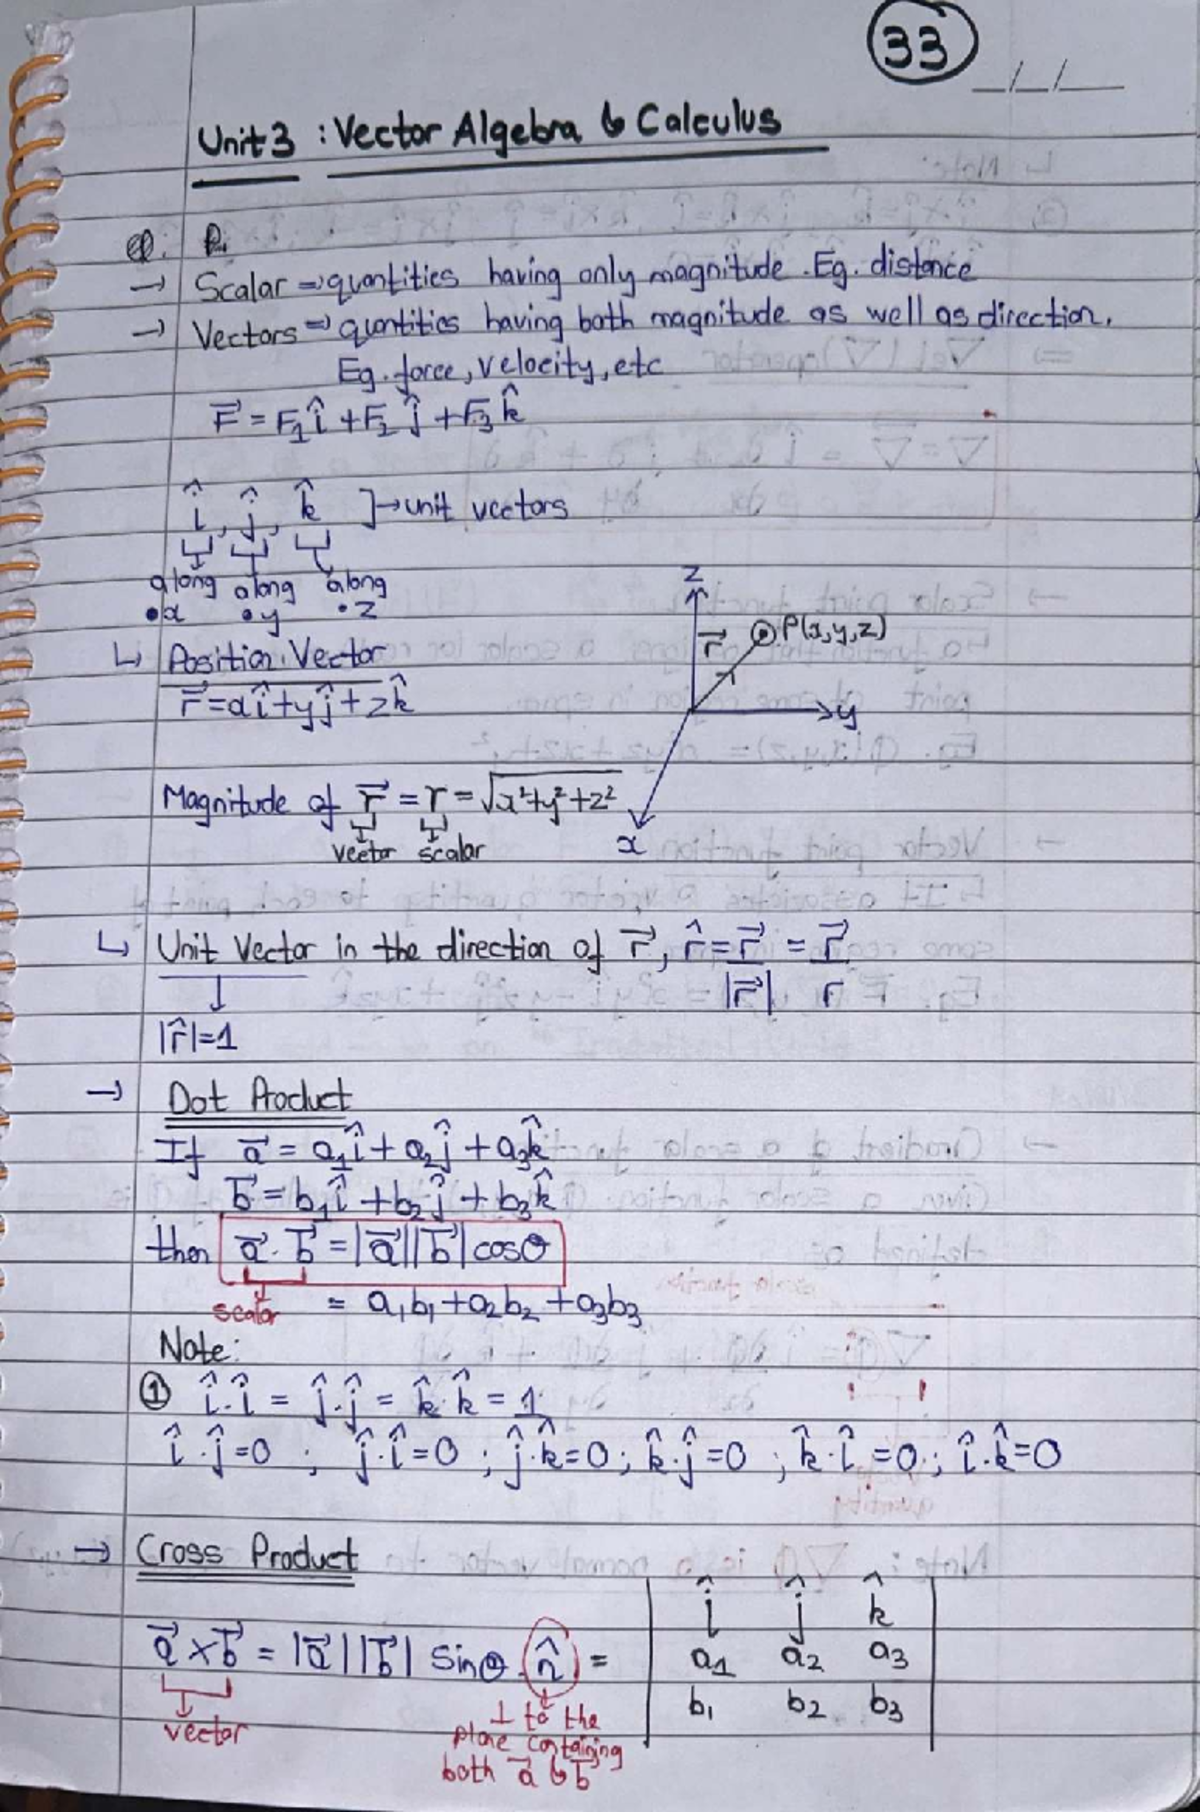 33
_/_/__
Unit 3 : Vector Algebra & Calculus
→ Scalar ⇒ quantities having only magnitude. Eg. distance
→ Vectors ⇒ quantities having both magnitude as well as direction.
Eg. force, velocity, etc
F⃗ = F₁î + F₂ĵ + F₃k̂
î, ĵ, k̂ ]→ unit vectors
along along along
•x •y •z
↳ Position Vector
r⃗ = xî + yĵ + zk̂
z
r⃗
P(x,y,z)
y
x
Magnitude of r⃗ = r = √x²+y²+z²
vector scalar
↳ Unit Vector in the direction of r⃗, r̂ = r⃗/|r⃗| = r⃗/r
↓
|r̂|=1
→ Dot Product
If a⃗ = a₁î + a₂ĵ + a₃k̂
b⃗ = b₁î + b₂ĵ + b₃k̂
then a⃗ · b⃗ = |a⃗||b⃗| cosθ
scalar = a₁b₁ + a₂b₂ + a₃b₃
Note:
① î·î = ĵ·ĵ = k̂·k̂ = 1
î·ĵ=0 ; ĵ·î=0 ; ĵ·k̂=0 ; k̂·ĵ=0 ; k̂·î=0 ; î·k̂=0
→ Cross Product
a⃗ × b⃗ = |a⃗||b⃗| sinθ . n̂ = | î ĵ k̂ |
a₁ a₂ a₃
b₁ b₂ b₃
vector
⊥ to the
plane containing
both a⃗ & b⃗